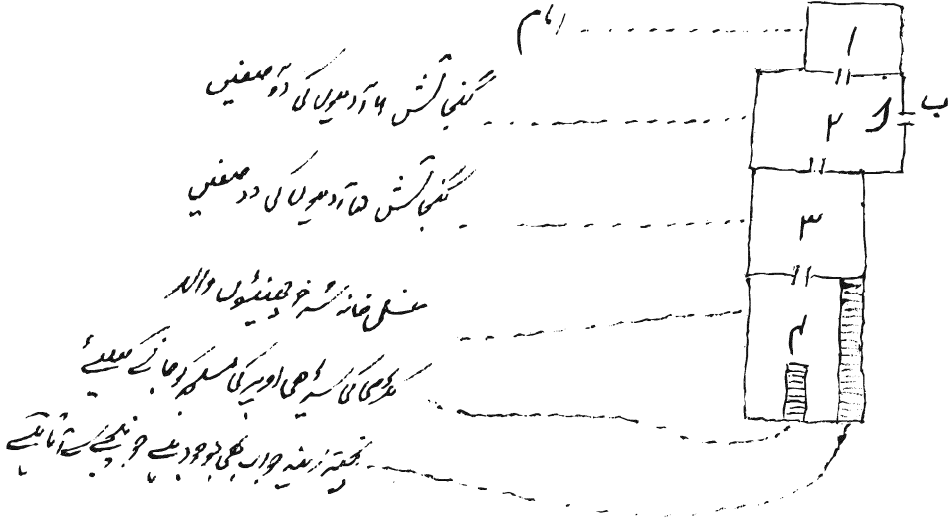 امام
۱
گنجائش ۶ آدمیوں کی دو صفیں
۲
ب
گنجائش ۵ آدمیوں کی دو صفیں
۳
غسل خانہ ٹونٹیوں والا
۴
لکڑی کی سیڑھی اوپر کی مسجد کو جانے کیلئے
پختہ زینہ جو اب بھی موجود ہے جو نیچے سے آتا ہے